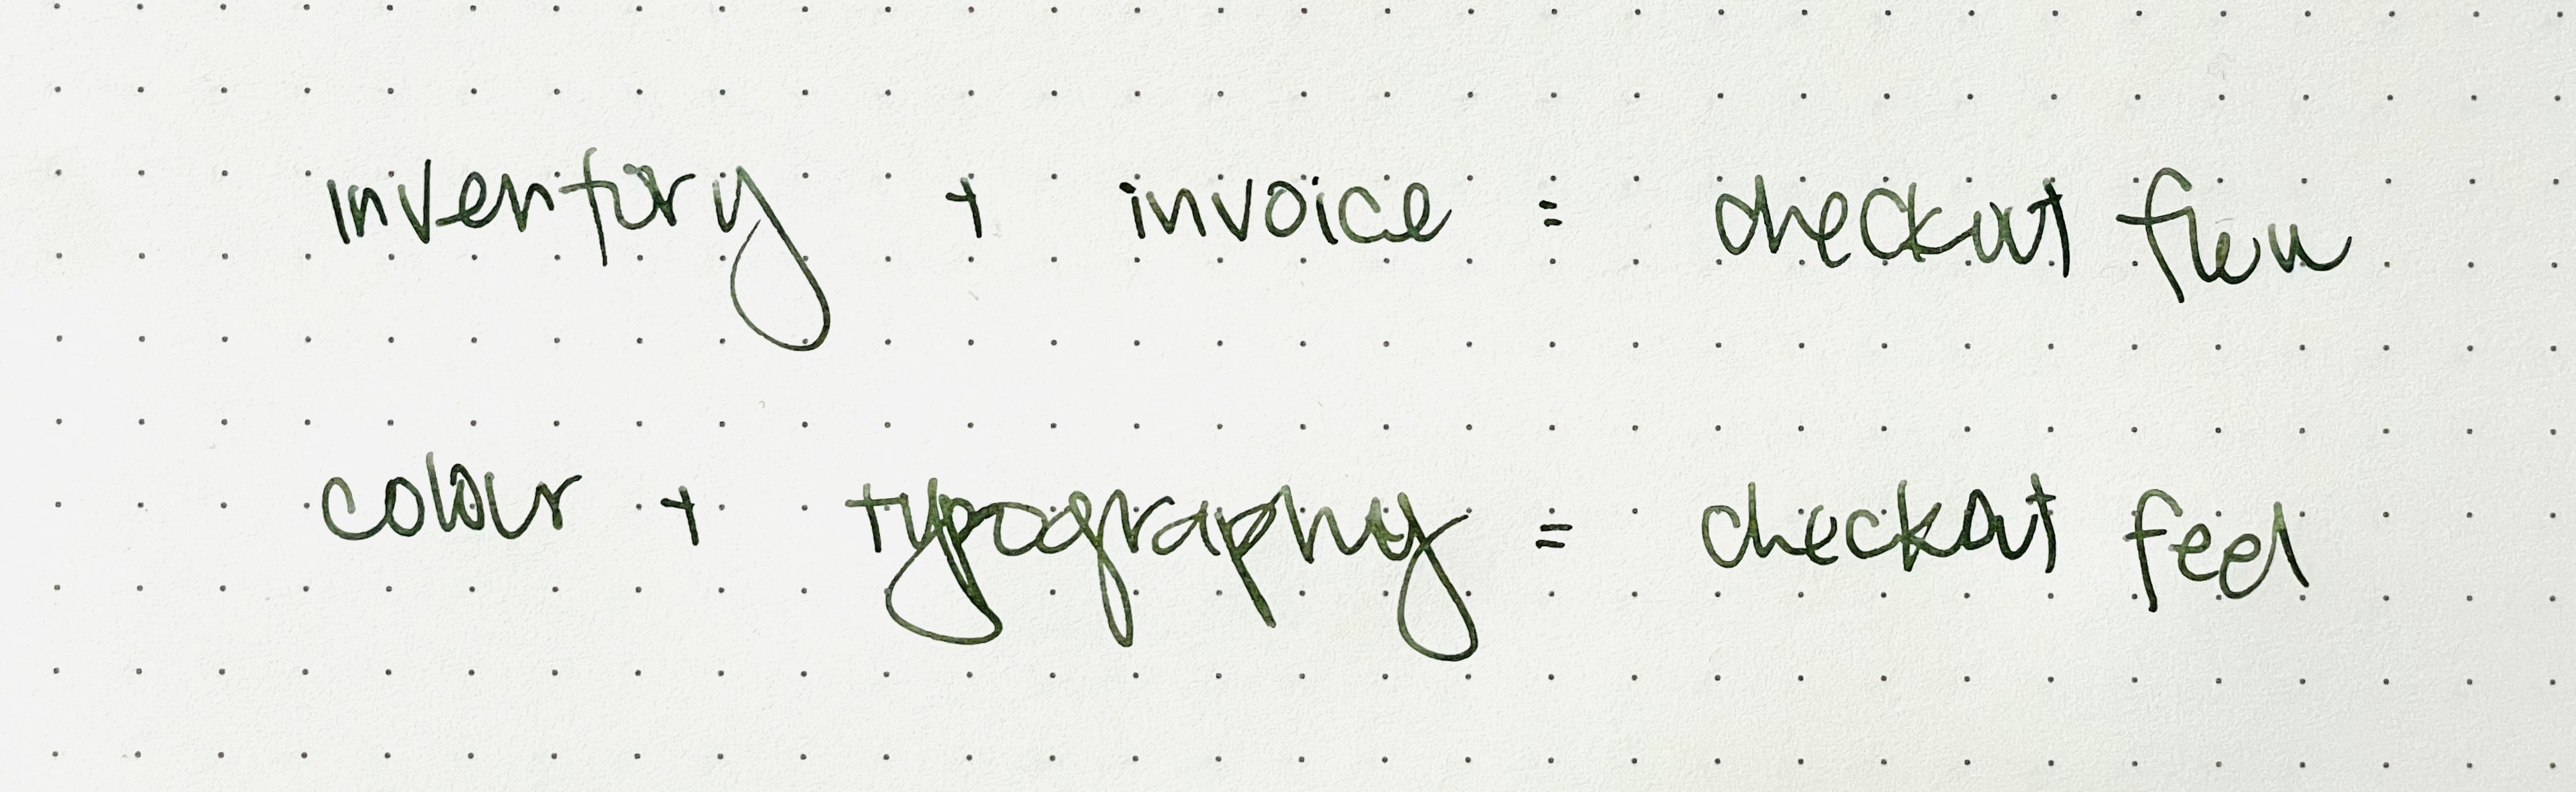 inventory + invoice = checkout flow
colour + typography = checkout feel